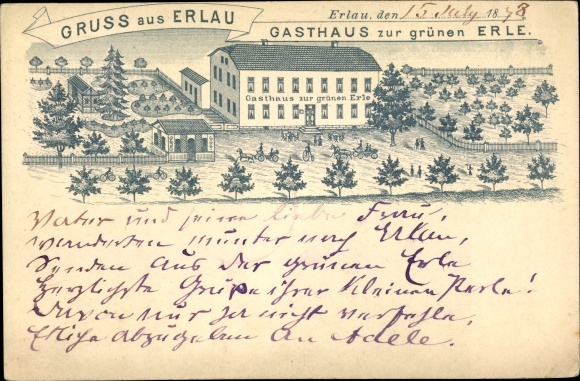 GRUSS aus ERLAU
Erlau, den 15. July 1898
GASTHAUS zur grünen ERLE.
Gasthaus zur grünen Erle
Vater und seine liebe Frau,
wanderten munter nach Erlau,
Senden aus der grünen Erle
Herzlichste Grüße ihrer kleinen Perle!
Davon nur ja nicht verfehle,
Etliche abzugeben an Adele.